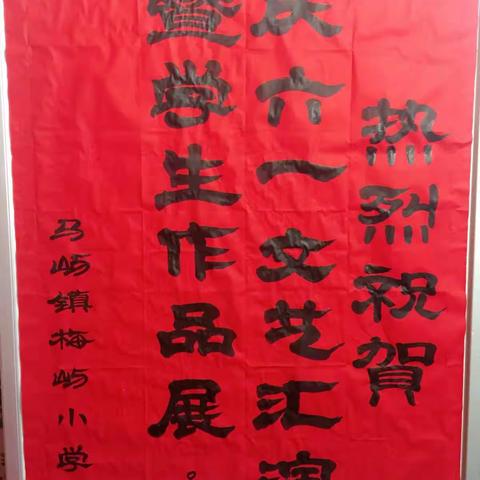 热烈祝賀
庆六一文艺汇演
暨学生作品展。
马屿鎮梅屿小学